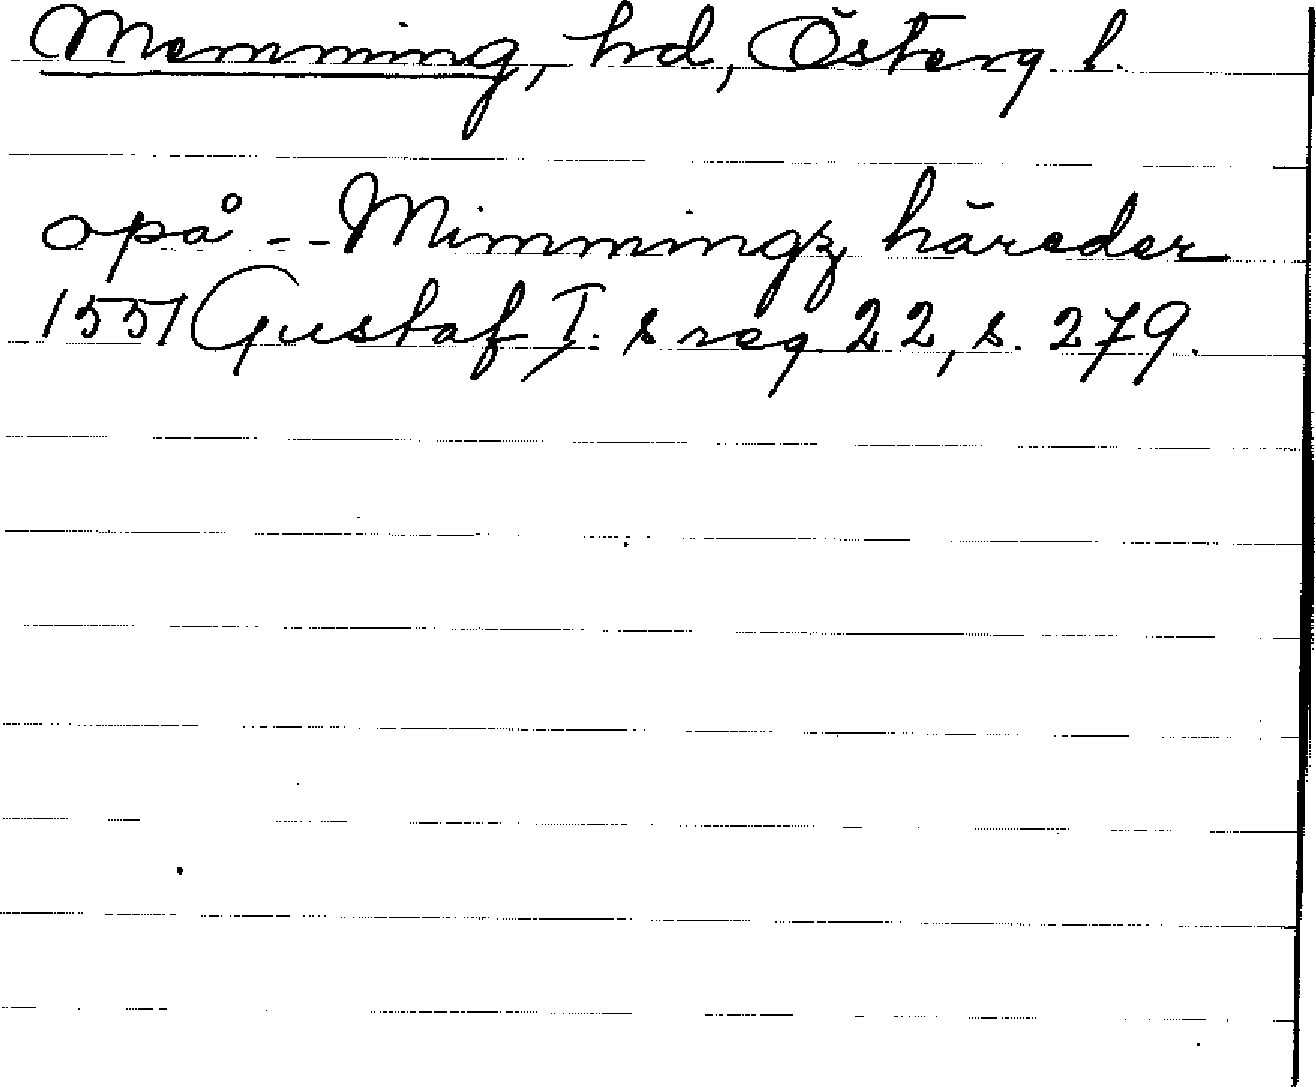 Memming, hd, Österg l.
opå -- Mimmingz häreder
1551 Gustaf I: s reg 22, s. 279.